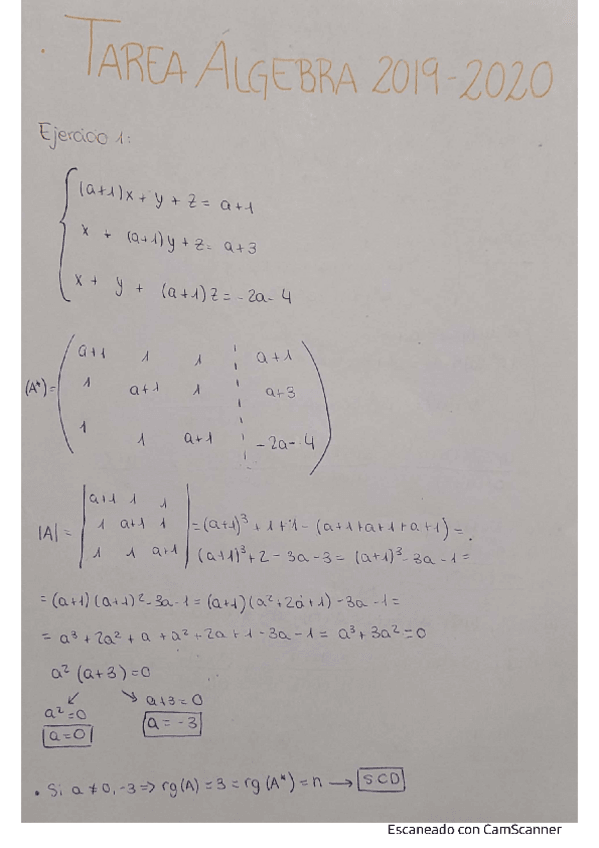 · TAREA ÁLGEBRA 2019-2020
Ejercicio 1:
(a+1)x + y + z = a+1
x + (a+1)y + z = a+3
x + y + (a+1)z = -2a-4
(A*) = ( a+1 1 1 ¦ a+1
1 a+1 1 ¦ a+3
1 1 a+1 ¦ -2a-4 )
|A| = | a+1 1 1
1 a+1 1 | = (a+1)³ + 1 + 1 - (a+1+a+1+a+1) =
1 1 a+1 (a+1)³+2-3a-3 = (a+1)³-3a-1 =
= (a+1)(a+1)²-3a-1 = (a+1)(a²+2a+1)-3a-1 =
= a³+2a²+a+a²+2a+1-3a-1 = a³+3a²=0
a²(a+3)=0
↙ ↘
a²=0 a+3=0
a=0 a=-3
• Si a≠0,-3 => rg(A)=3=rg(A*)=n → SCD
Escaneado con CamScanner